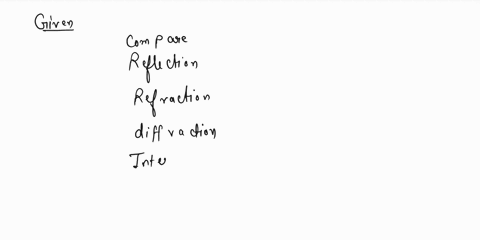 Given
Compare
Reflection
Refraction
diffraction
Inte